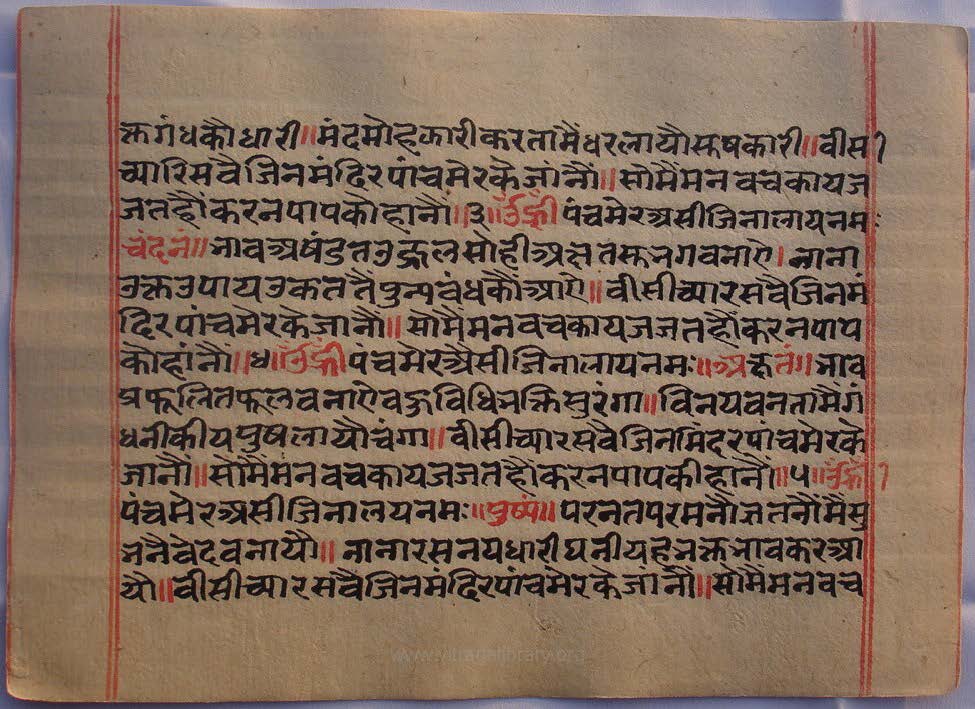 क्तगंधकौधारी॥मंदमोहकारीकरतामैंधरलायौसुषकारी॥वीस
च्यारिसवैजिनमंदिरपांचमेरकेजांनौं॥सोमैंमनवचकायज
जतहौंकरनपापकौहानौं॥३॥ॐह्रीपंचमेरअसीजिनालायनमः
चंदनं॥भावअषंडुतउज्जलसोहीअक्षतसुभगवनाऐ।नाना
उक्तउपायउकततैंपुन्यवंधकौआऐ॥वीसीच्यारसवैजिनमं
दिरपांचमेरकेजांनौं॥सोमैंमनवचकायजजतहौंकरनपाप
कौहांनौं॥४॥ॐह्रीपंचमेरअैसीजिनालायनमः॥अक्षतं॥भाव
प्रफूलितफूलवनाऐवज्जविधिभक्तिसुरंगा॥विनयवनतामैंगं
धनीकीयपुषलायौचंगा॥वीसीच्यारसवैजिनमिंदरपांचमेरके
जानौं॥सोमैंमनवचकायजजतहौकरनपापकीहानौं॥५॥ॐह्री
पंचमेरअसीजिनालयनमः॥पुष्पं॥परनतपरमनौज्ञतनौंमैंसु
भनैवेदवनायौ॥नानारसनयधारीघनीयहभक्तभावकरआ
यौ॥वीसीच्यारसवैजिनमंदिरपांचमेरकेजांनौं॥सोमैंमनवच